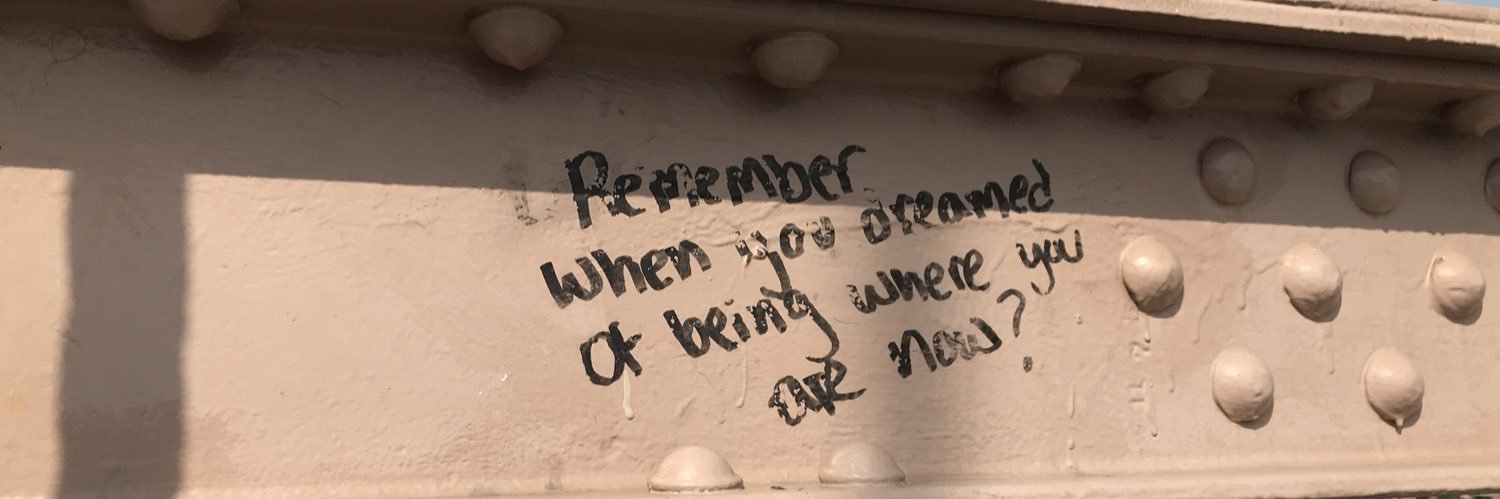 Remember
when you dreamed
Of being where you
are now?